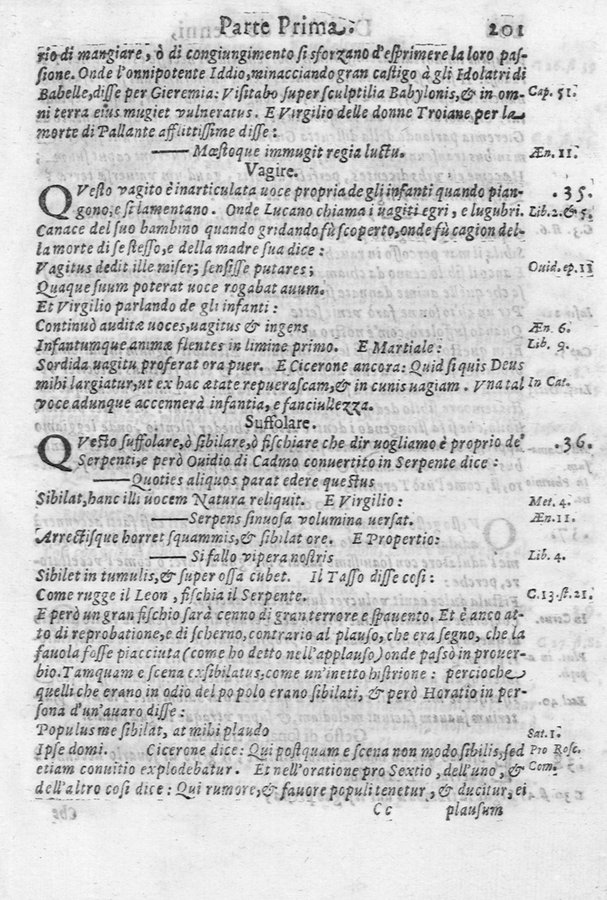 Parte Prima. 201
rio di mangiare, ò di congiungimento si sforzano d'esprimere la loro pas-
sione. Onde l'onnipotente Iddio, minacciando gran castigo à gli Idolatri di
Babelle, disse per Gieremia: Visitabo super sculptilia Babylonis, & in om- Cap. 51.
ni terra eius mugiet vulneratus. E Virgilio delle donne Troiane per la
morte di Pallante afflittissime disse:
—— Mœstoque immugit regia luctu. Æn. 11.
Vagire.
QVesto vagito è inarticulata uoce propria de gli infanti quando pian- .35.
gono, e si lamentano. Onde Lucano chiama i uagiti egri, e lugubri. Lib. 2. & 5.
Canace del suo bambino quando gridando fù scoperto, onde fù cagion del-
la morte di se stesso, e della madre sua dice:
Vagitus dedit ille miser; sensisse putares; Ouid. ep. 11
Quaque suum poterat uoce rogabat auum.
Et Virgilio parlando de gli infanti:
Continuò auditæ uoces, uagitus & ingens Æn. 6.
Infantumque animæ flentes in limine primo. E Martiale: Lib. 9.
Sordida uagitu proferat ora puer. E Cicerone ancora: Quid si quis Deus
mihi largiatur, ut ex hac ætate repuerascam, & in cunis uagiam. Vna tal In Cat.
voce adunque accennerà infantia, e fanciullezza.
Suffolare.
QVesto suffolare, ò sibilare, ò fischiare che dir uogliamo è proprio de' .36.
Serpenti, e però Ouidio di Cadmo conuertito in Serpente dice:
—— Quoties aliquos parat edere questus
Sibilat, hanc illi uocem Natura reliquit. E Virgilio: Met. 4.
—— Serpens sinuosa volumina uersat. Æn. 11.
Arrectisque horret squammis, & sibilat ore. E Propertio:
—— Si fallo vipera nostris Lib. 4.
Sibilet in tumulis, & super ossa cubet. Il Tasso disse così:
Come rugge il Leon, fischia il Serpente. C. 13. st. 21.
E però un gran fischio sarà cenno di gran terrore e spauento. Et è anco at-
to di reprobatione, e di scherno, contrario al plauso, che era segno, che la
fauola fosse piacciuta (come ho detto nell'applauso) onde passò in prouer-
bio. Tamquam e scena exsibilatus, come un'inetto histrione: percioche
quelli che erano in odio del popolo erano sibilati, & però Horatio in per-
sona d'un'auaro disse:
Populus me sibilat, at mihi plaudo Sat. 1.
Ipse domi. Cicerone dice: Qui postquam e scena non modo sibilis, sed Pro Rosc.
etiam conuitio explodebatur. Et nell'oratione pro Sextio, dell'uno, & Com.
dell'altro così dice: Qui rumore, & fauore populi tenetur, & ducitur, ei
Cc plausum